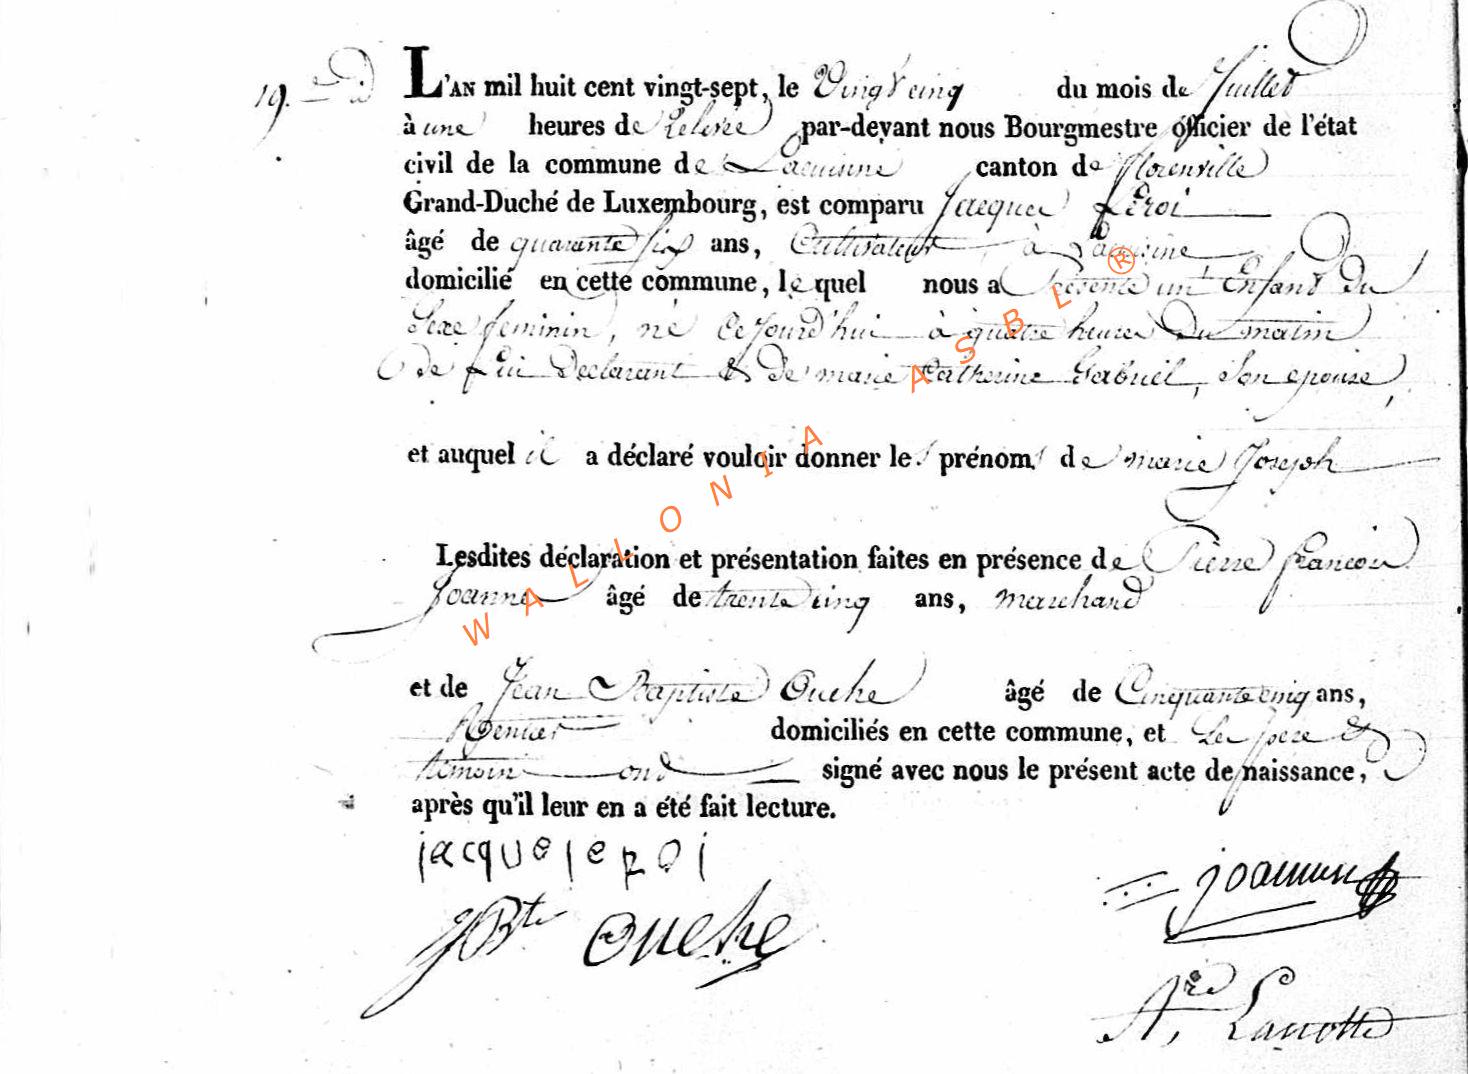 19. id
L'AN mil huit cent vingt-sept, le Vingt cinq du mois de Juillet
à une heures de Relevée par-devant nous Bourgmestre officier de l'état
civil de la commune de Lacuisine canton de florenville
Grand-Duché de Luxembourg, est comparu Jacques Leroi
âgé de quarante six ans, Cultivateur à Lacuisine
domicilié en cette commune, lequel nous a Présenté un Enfant du
Sexe feminin, né Cejourd'hui à quatre heures Du matin
de Lui Declarant & de marie Catherine Gabriel, Son epouse,
et auquel il a déclaré vouloir donner les prénoms de marie Joseph
Lesdites déclaration et présentation faites en présence de Pierre françois
Joanne âgé de trente cinq ans, marchand
et de Jean Baptiste Ouche âgé de Cinquante cinq ans,
Rentier domiciliés en cette commune, et Le pere &
témoins ont signé avec nous le présent acte de naissance,
après qu'il leur en a été fait lecture.
jacque leroi
joannes
JBte Ouche
Lanotte
WALLONIA ASBL ®